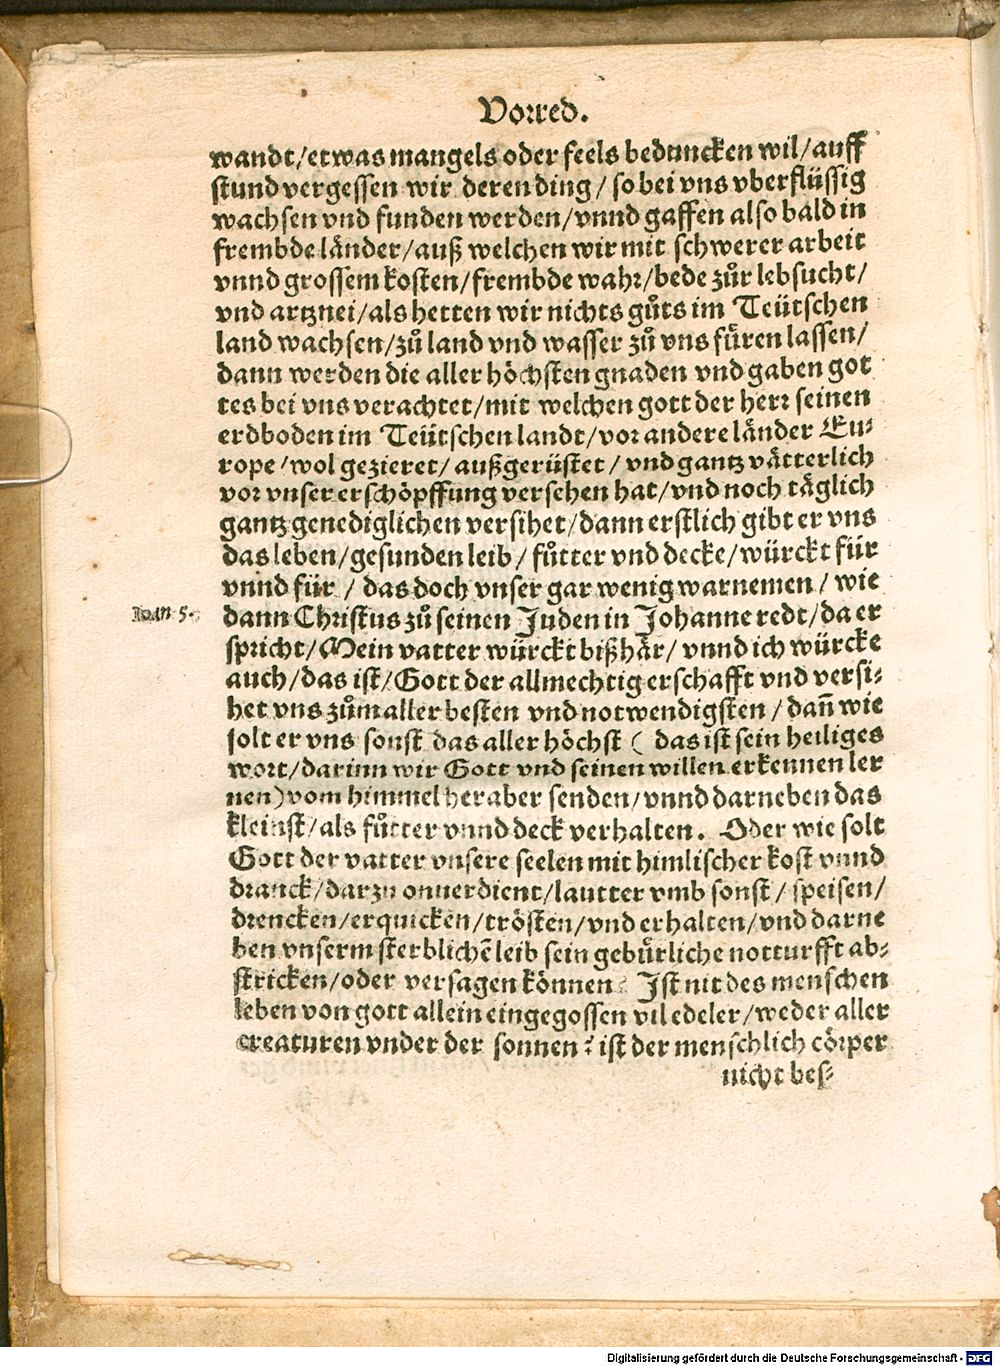 Vorred.
wandt/etwas mangels oder feels beduncken wil/auff
stund vergessen wir deren ding/so bei vns vberflüssig
wachsen vnd funden werden/vnnd gaffen also bald in
frembde länder/auß welchen wir mit schwerer arbeit
vnnd grossem kosten/frembde wahr/bede zůr lebsucht/
vnd artznei/als hetten wir nichts gůts im Teütschen
land wachsen/zů land vnd wasser zů vns füren lassen/
dann werden die aller höchsten gnaden vnd gaben got
tes bei vns verachtet/mit welchen gott der herr seinen
erdboden im Teütschen landt/vor andere länder Eu⸗
rope/wol gezieret/außgerüstet/vnd gantz vätterlich
vor vnser erschöpffung versehen hat/vnd noch täglich
gantz genediglichen versihet/dann erstlich gibt er vns
das leben/gesunden leib/fůtter vnd decke/würckt für
vnnd für/das doch vnser gar wenig warnemen/wie
Ioan 5.
dann Christus zů seinen Juden in Johanne redt/da er
spricht/Mein vatter würckt bißhär/vnnd ich würcke
auch/das ist/Gott der allmechtig erschafft vnd versi⸗
het vns zům aller besten vnd notwendigsten/dañ wie
solt er vns sonst das aller höchst (das ist sein heiliges
wort/darinn wir Gott vnd seinen willen erkennen ler
nen) vom himmel heraber senden/vnnd darneben das
kleinst/als fůtter vnnd deck verhalten. Oder wie solt
Gott der vatter vnsere seelen mit himlischer kost vnnd
dranck/darzu onuerdient/lautter vmb sonst/speisen/
drencken/erquicken/trösten/vnd erhalten/vnd darne
ben vnserm sterblichē leib sein gebürliche notturfft ab⸗
stricken/oder versagen können? Ist nit des menschen
leben von gott allein eingegossen vil edeler/weder aller
creaturen vnder der sonnen? ist der menschlich cörper
nicht bes⸗
Digitalisierung gefördert durch die Deutsche Forschungsgemeinschaft - DFG